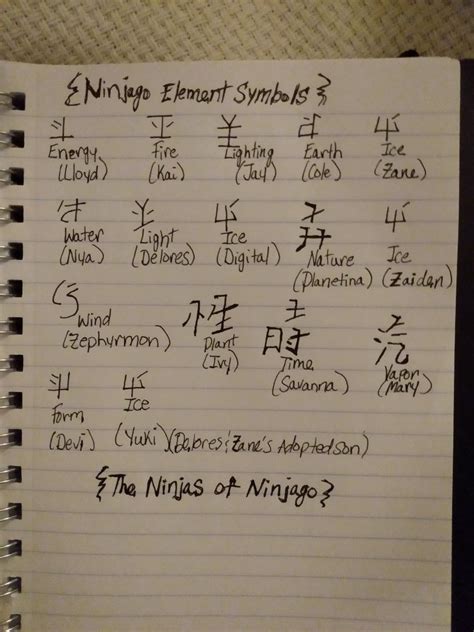 {Ninjago Element Symbols}
Energy Fire Lighting Earth Ice
(Lloyd) (Kai) (Jay) (Cole) (Zane)
Water Light Ice Nature Ice
(Nya) (Delores) (Digital) (Planetina) (Zaiden)
Wind Plant Time Vapor
(Zephyrmon) (Ivy) (Savanna) (Mary)
Form Ice
(Devi) (Yuki) (Delores & Zane's Adopted son)
{The Ninjas of Ninjago}